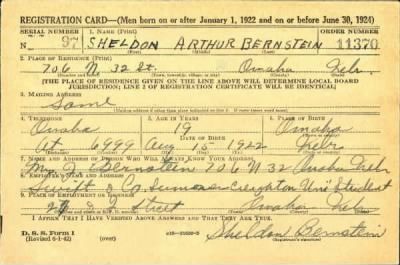 REGISTRATION CARD—(Men born on or after January 1, 1922 and on or before June 30, 1924)
SERIAL NUMBER 1. NAME (Print) ORDER NUMBER
N 97 SHELDON ARTHUR BERNSTEIN 11370
2. PLACE OF RESIDENCE (Print)
706 N 32 St. Omaha Nebr.
(THE PLACE OF RESIDENCE GIVEN ON THE LINE ABOVE WILL DETERMINE LOCAL BOARD
JURISDICTION; LINE 2 OF REGISTRATION CERTIFICATE WILL BE IDENTICAL)
3. MAILING ADDRESS
Same
4. TELEPHONE 5. AGE IN YEARS 6. PLACE OF BIRTH
Omaha 19 Omaha
DATE OF BIRTH
At 6999 Aug 15 1922 Nebr
7. NAME AND ADDRESS OF PERSON WHO WILL ALWAYS KNOW YOUR ADDRESS
Mrs J. Bernstein 706 N 32 Omaha Nebr
8. EMPLOYER'S NAME AND ADDRESS
Swift & Co Summer Creighton Uni Student
9. PLACE OF EMPLOYMENT OR BUSINESS
Street Omaha Nebr
I AFFIRM THAT I HAVE VERIFIED ABOVE ANSWERS AND THAT THEY ARE TRUE.
D. S. S. Form 1
(Revised 6-1-42) (over) Sheldon Bernstein
(Registrant's signature)